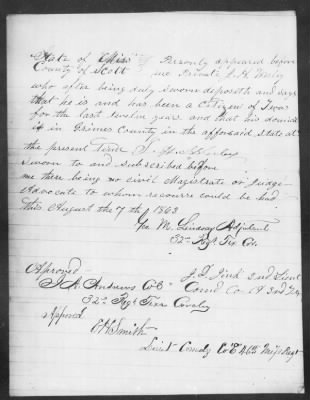 State of Miss } Personly appeared before
County of Scott } me Private J. H. Wesley
who after being duly sworn deposeth and says
that he is and has been a Citizen of Texas
for the last twelve years and that his domicil
is in Grimes County in the afforsaid state at
the present time
Sworn to and subscribed before
me there being no civil Magistrate or Judge
Advocate to whom recourse could be had
this August the 7th 1863
Geo M. Lindsay Adjutant
32nd Regt Tex Ca.
Approved J. D. 2nd Lieut
J. A. Andrews Co B
32nd Regt Texs Cavalry
Approved
C H Smith
Lieut Comdg Co E 46th Miss Regt